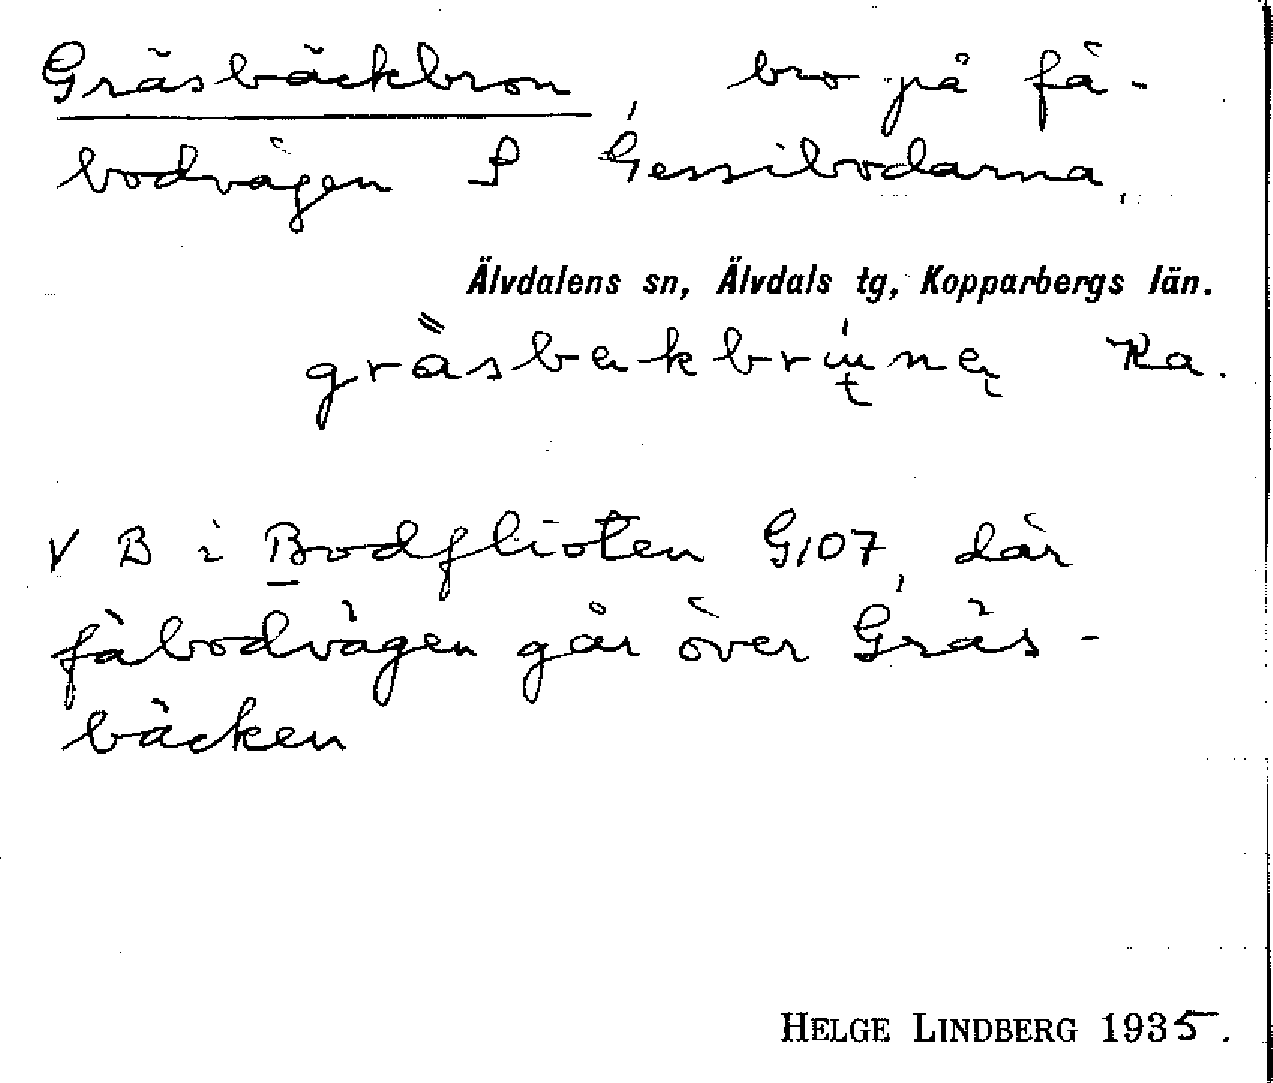 Gräsbäckbron, bro på fä-
bodvägen S Gessibodarna,
Älvdalens sn, Älvdals tg, Kopparbergs län.
Ka.
V B i Bodflioten G107, där
fäbodvägen går över Gräs-
bäcken
HELGE LINDBERG 1935.